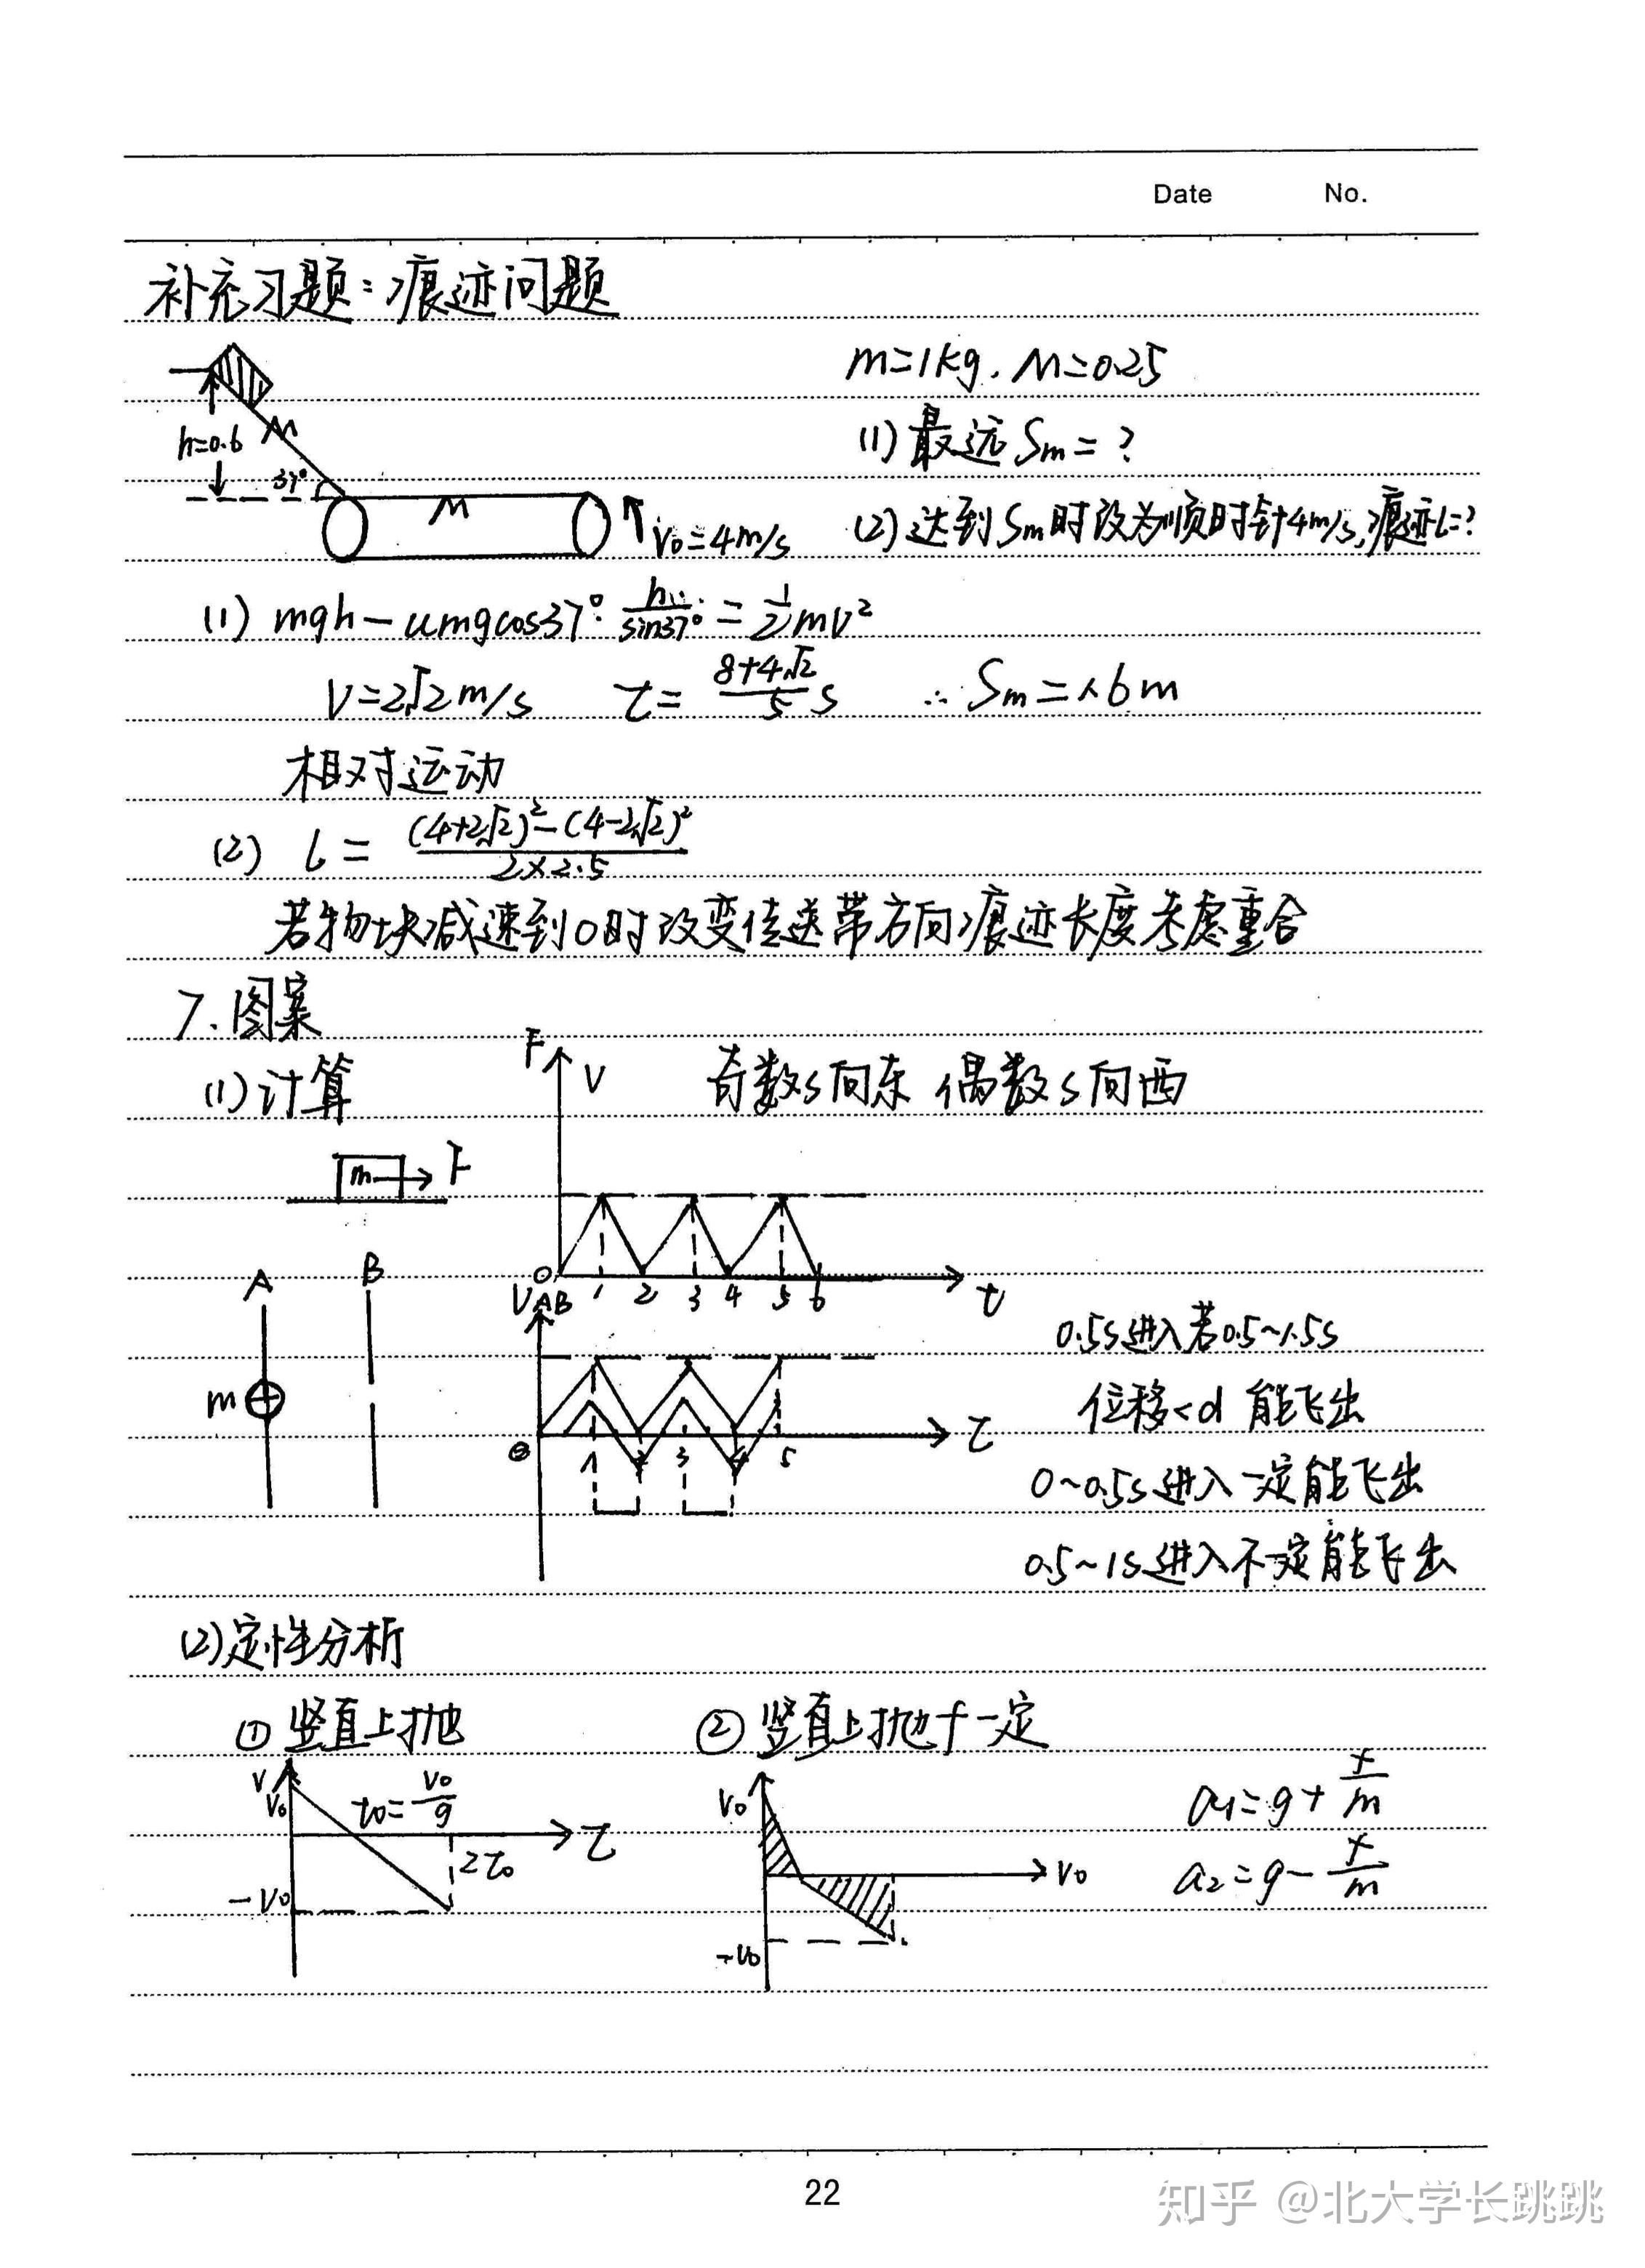 Date No.
补充习题：痕迹问题
m=1kg. μ=0.25
h=0.6 μ
37°
(1) 最远 Sm=?
μ
V₀=4m/s
(2) 达到Sm时改为顺时针4m/s,痕迹L=?
(1) mgh-umgcos37°·h/sin37°=1/2mv²
V=2√2m/s t=(8+4√2)/5 s ∴Sm=1.6m
相对运动
(2) L=((4+2√2)²-(4-2√2)²)/(2×2.5)
若物块减速到0时改变传送带方向痕迹长度考虑重合
7.图案
(1)计算
F V
奇数s向东 偶数s向西
m F
O 1 2 3 4 5 6 t
A B
VAB
m
1 2 3 4 5 t
0.5s进入若0.5~1.5s
位移<d 能飞出
0~0.5s进入一定能飞出
0.5~1s进入不一定能飞出
(2)定性分析
①竖直上抛 ②竖直上抛f一定
V V₀ t₀=V₀/g t 2t₀ -V₀
V₀ V₀ -V₀
a₁=g+f/m
a₂=g-f/m
22
知乎 @北大学长跳跳